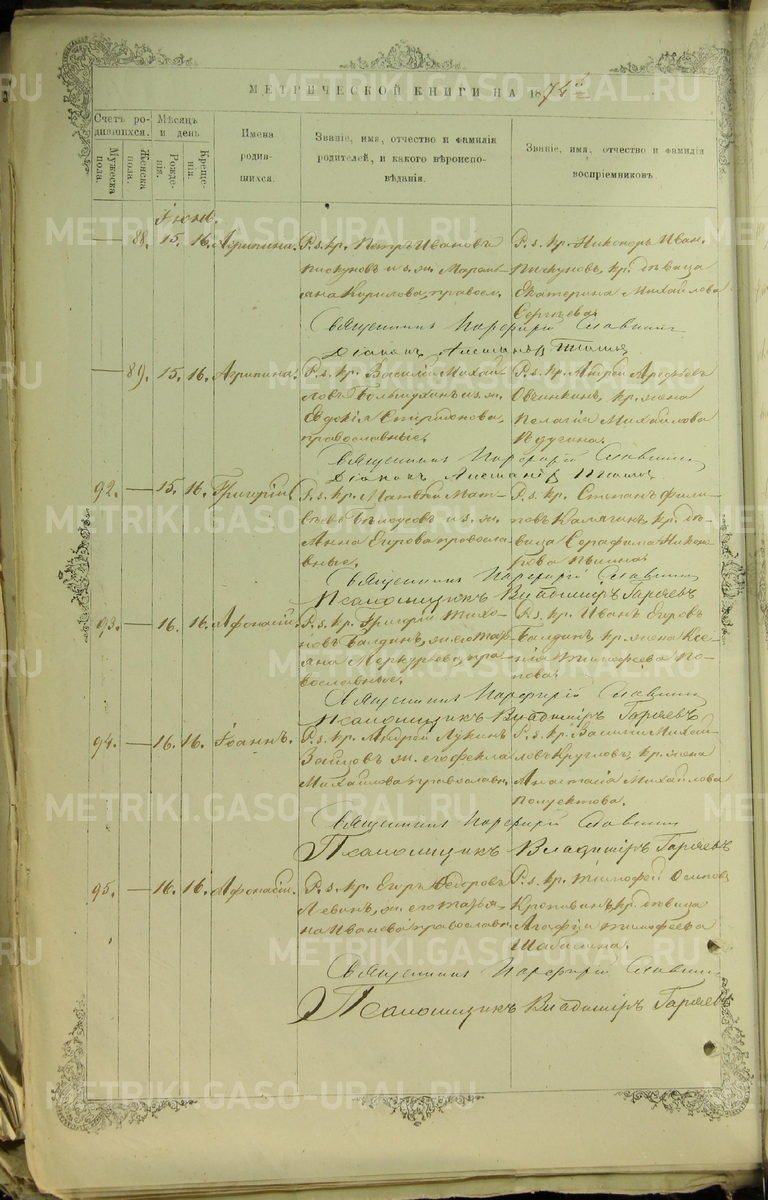 МЕТРИЧЕСКОЙ КНИГИ НА 1874й
Счетъ ро-
дившихся.
Мужеска
пола.
Женска
пола.
Мѣсяцъ
и день
Рожде-
нія.
Креще-
нія.
Имена
родив-
шихся.
Званіе, имя, отчество и фамилія
родителей, и какого вѣроиспо-
вѣданія.
Званіе, имя, отчество и фамилія
воспріемниковъ.
Іюнь.
— 88. 15. 16. Агрипина.
Р. з. кр. Петръ Ивановъ
Пискуновъ и з. ж. Марѳ-
Кирилова, правосл.
Р. з. кр. Никоноръ Иван.
Пискуновъ, кр. дѣвица
Екатерина Михайлова
Сергѣева.
Священникъ Порфирій Славнинъ
Діаконъ
— 89. 15. 16. Агрипина.
Р. з. кр. Василій Михай-
ловъ и з. ж.
Евдокія Спиридонова,
православные.
Р. з. кр. Андрей
Овчинкинъ, кр. жена
Пелагія Михайлова
Священникъ Порфирій Славнинъ
Діаконъ
92. — 15. 16. Григорій.
Р. з. кр. Матвѣй Мат-
вѣевъ Бѣлоусовъ и з. ж.
Анна Егорова правосла-
вные.
Р. з. кр. Степанъ Фили-
повъ Калягинъ, кр. дѣ-
вица Серафима Никоно-
рова
Священникъ Порфирій Славнинъ
Псаломщикъ Владиміръ Гаряевъ
93. — 16. 16. Афонасій.
Р. з. кр. Григорій Тихо-
новъ Балдинъ, ж. его Тать-
яна Меркурьева, пра-
вославные.
Р. з. кр. Иванъ Егоровъ
Балдинъ, кр. жена Ксе-
нія Тимофеева По-
пова.
Священникъ Порфирій Славнинъ
Псаломщикъ Владиміръ Гаряевъ
94. — 16. 16. Іоаннъ.
Р. з. кр. Андрей Лукинъ
Зайцовъ, ж. его Фекла
Михайлова православн.
Р. з. кр. Василій Михай-
ловъ Кругловъ, кр. жена
Анастасія Михайлова
Полуектова.
Священникъ Порфирій Славнинъ
Псаломщикъ Владиміръ Гаряевъ
95. — 16. 16. Афонасій.
Р. з. кр. Егоръ Федоровъ
Левинъ, ж. его Татья-
на Иванова православн.
Р. з. кр. Тимофей Осиповъ
Крапивинъ, кр. дѣвица
Агафія Тимофеева
Шабалина.
Священникъ Порфирій Славнинъ
Псаломщикъ Владиміръ Гаряевъ
METRIKI.GASO-URAL.RU